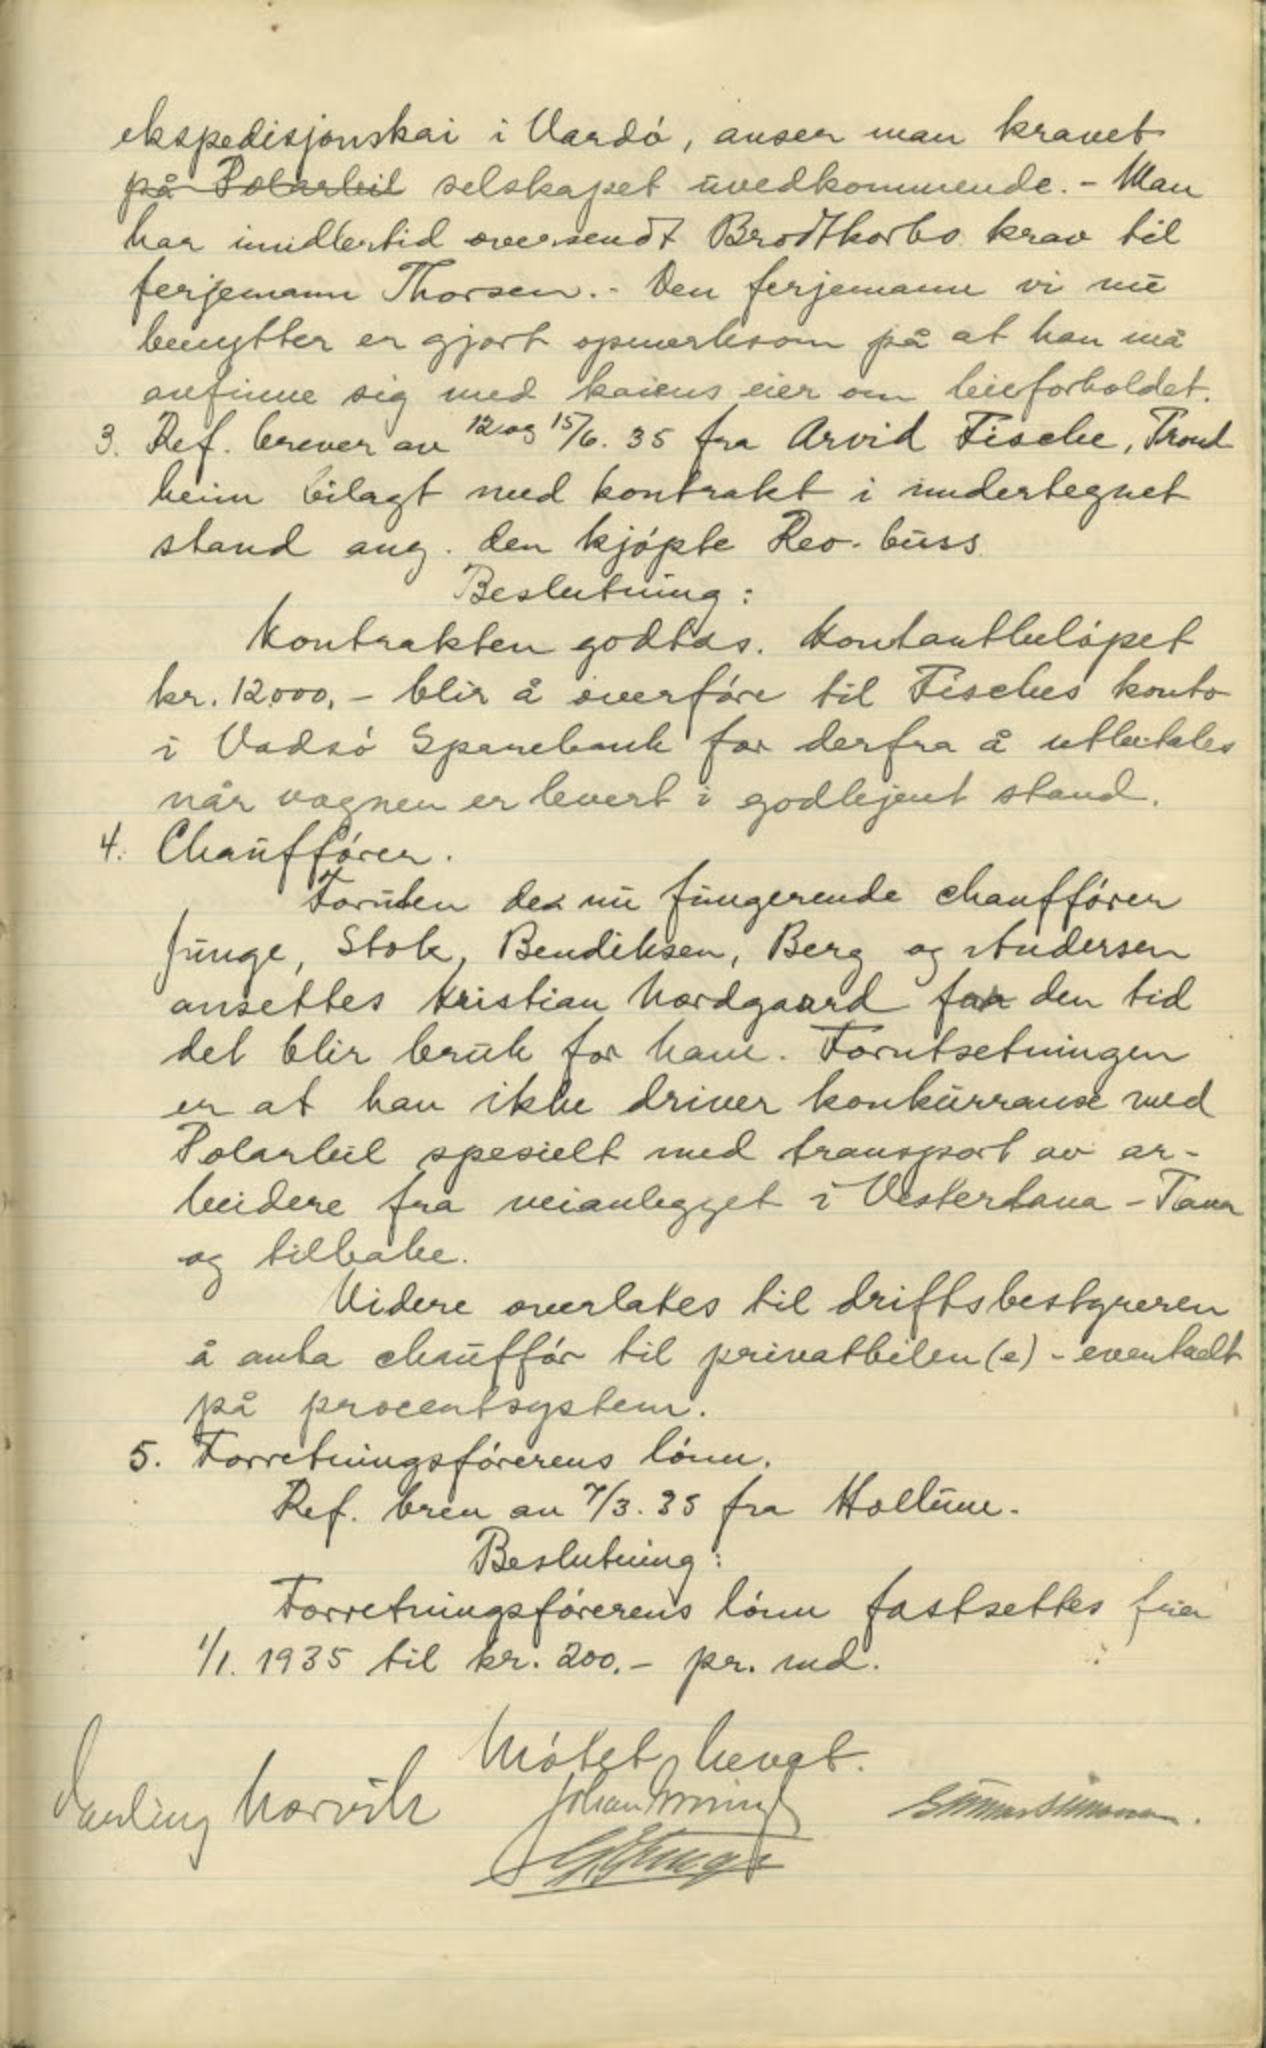 ekspedisjonskai i Vardó, anser man kravet
på Polarbil selskapet uvedkommende. - Man
har imidlertid oversendt Brodtkorbs krav til
ferjemann Thorsen. - Den ferjemann vi nu
benytter er gjort opmerksom på at han må
avfinne sig med kaiens eier om leieforholdet.
3. Ref. brever av 12 og 15/6. 35 fra Arvid Fische, Trond
heim bilagt med kontrakt i undertegnet
stand ang. den kjópte Reo-buss
Beslutning:
Kontrakten godtas. Kontantbelópet
kr. 12.000,- blir å overfóre til Fisches konto
i Vadsó Sparebank for derfra å utbetales
når vognen er levert i godkjent stand.
4. Chauffórer.
Foruten de nu fungerende chauffórer
Junge, Stok, Bendiksen, Berg og Andersen
ansettes Kristian Nordgaard for den tid
det blir bruk for ham. Forutsetningen
er at han ikke driver konkurranse med
Polarbil spesielt med transport av ar-
beidere fra veianlegget i Vestertana - Tana
og tilbake.
Videre overlates til driftsbestyreren
å anta chauffór til privatbilen(e) - eventuelt
på procentsystem.
5. Forretningsfórerens lónn.
Ref. brev av 7/3. 35 fra Hollum.
Beslutning:
Forretningsfórerens lónn fastsettes fra
1/1. 1935 til kr. 200.- pr. md.
Mótet hevet.
Norvik Johan